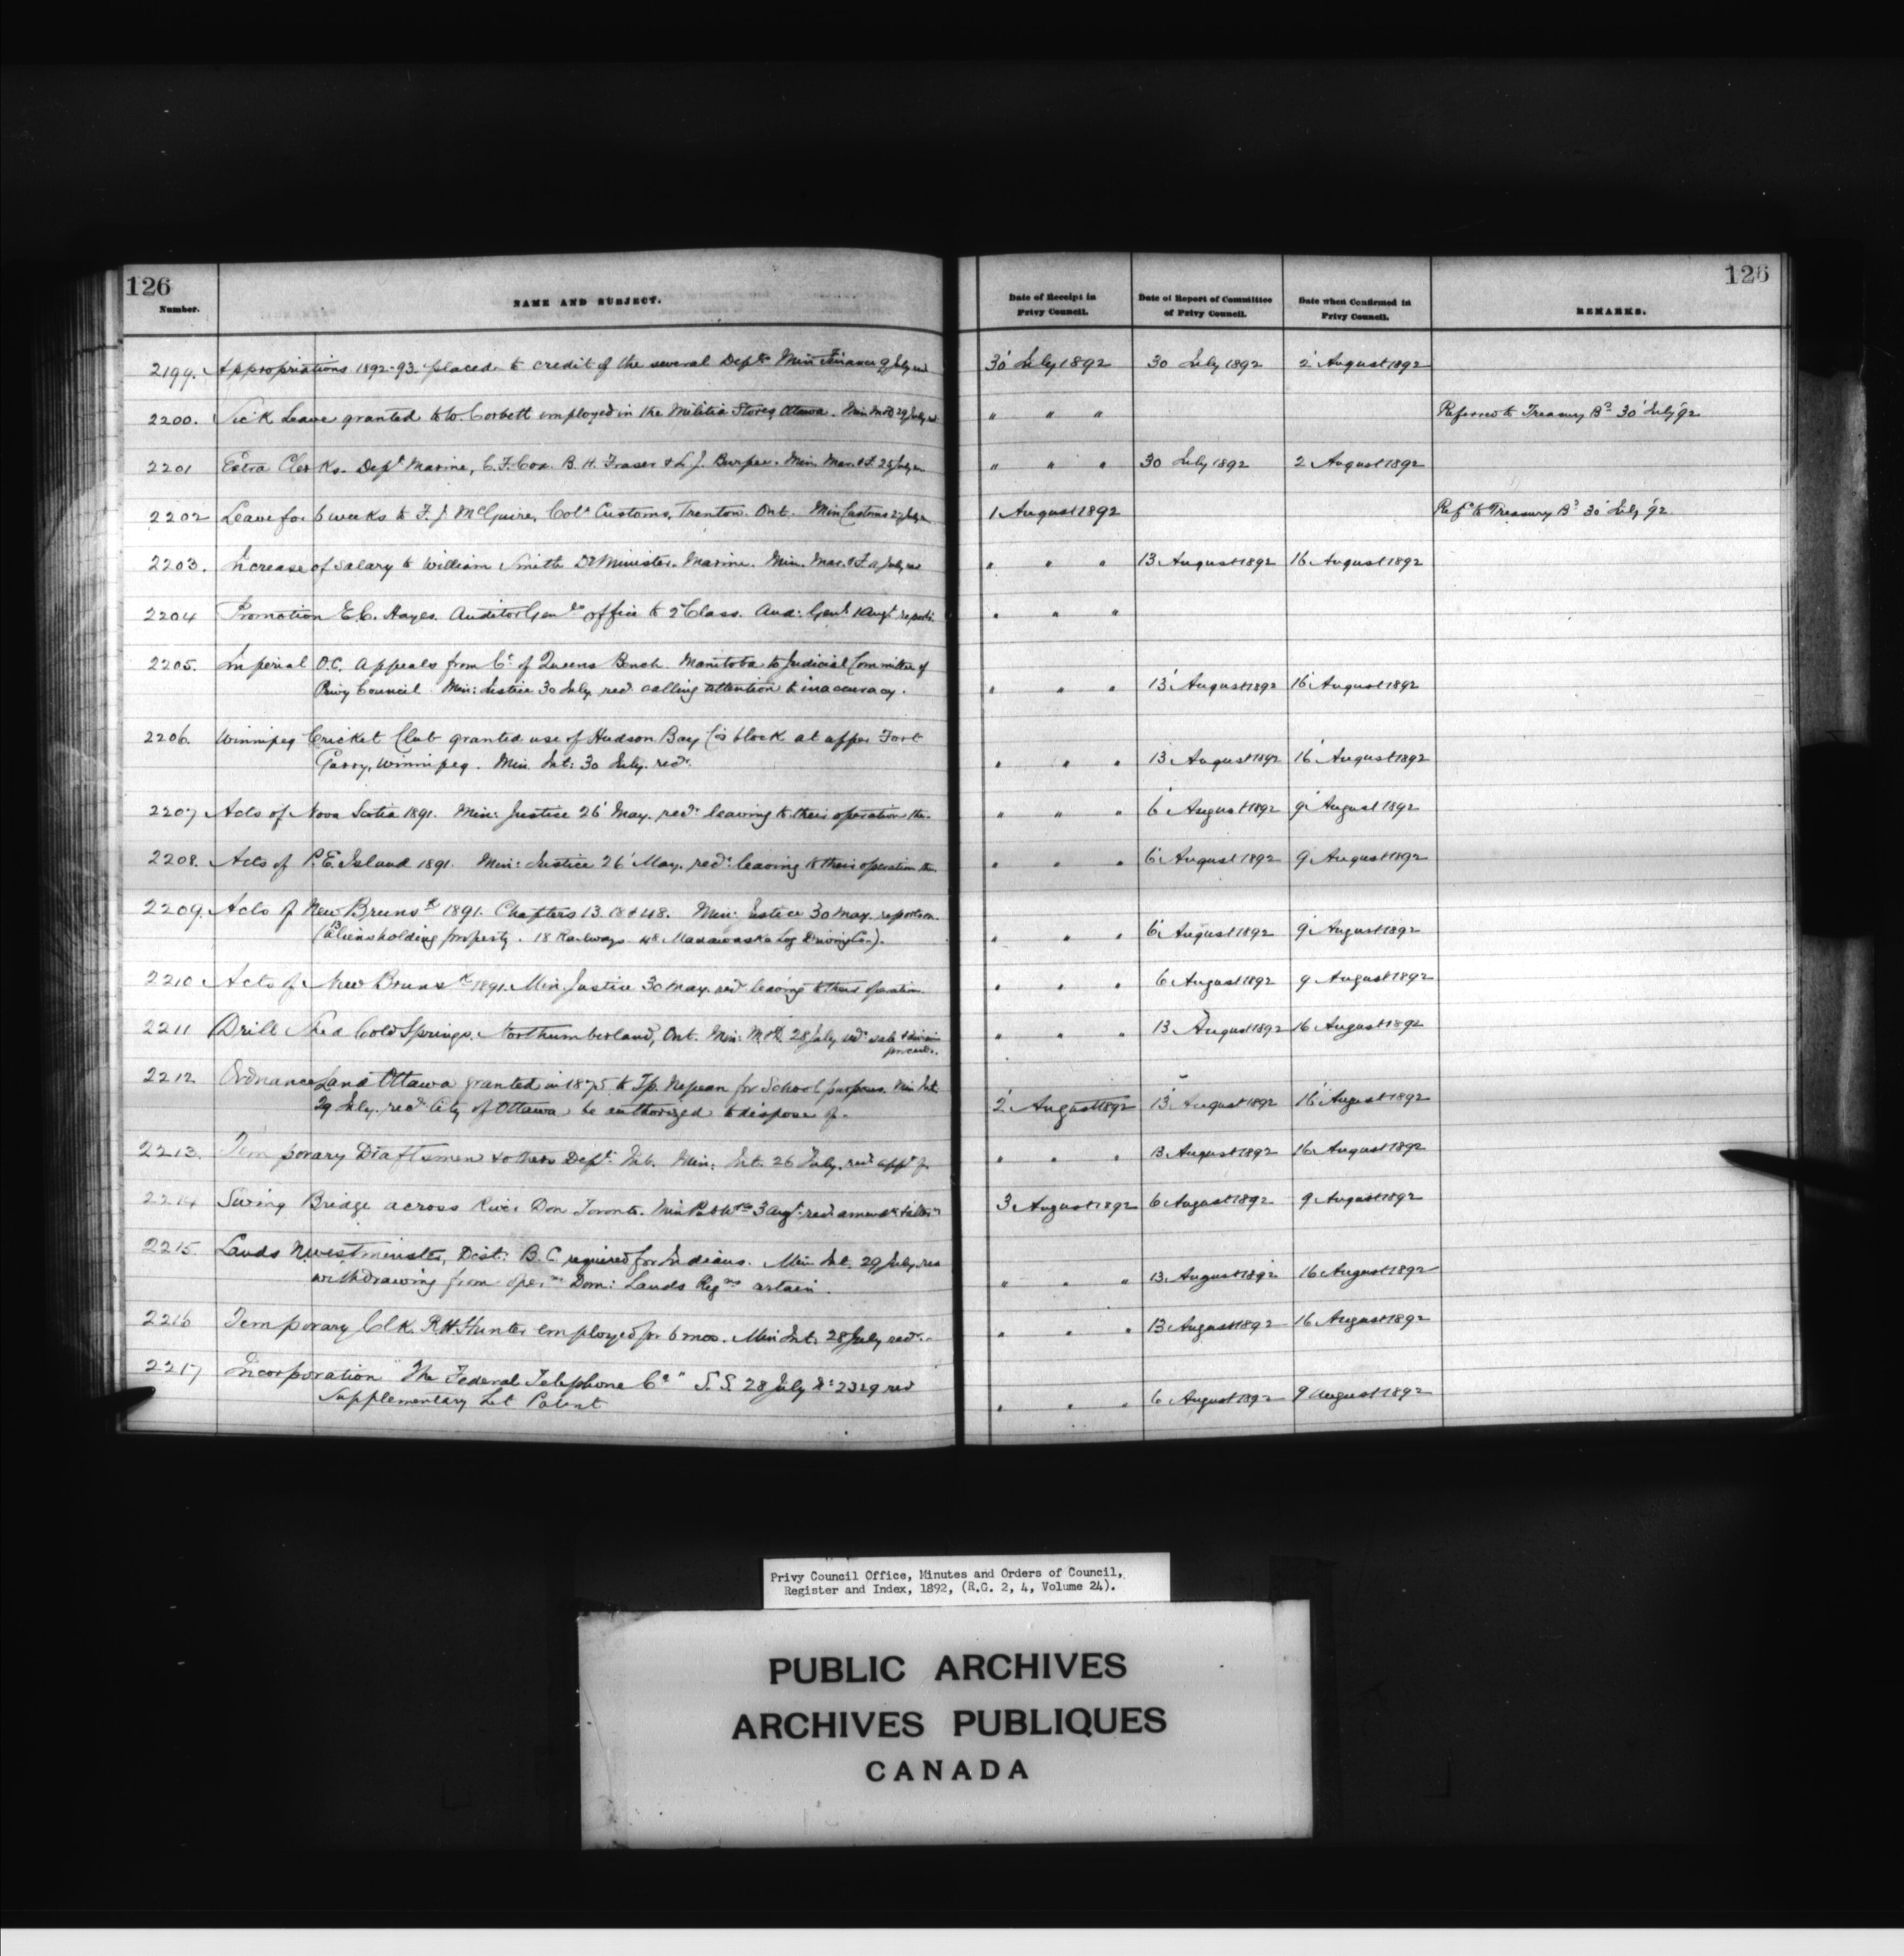 126
126
Number.
NAME AND SUBJECT.
Date of Receipt in Privy Council.
Date of Report of Committee of Privy Council.
Date when Confirmed in Privy Council.
REMARKS.
2199. Appropriations 1892-93 placed to credit of the several Depts. Min Finance 9 July red 30' July 1892 30 July 1892 2' August 1892
2200. Sick Leave granted to W. Corbett employed in the Militia Stores Ottawa. Min M&D 29 July red " " " Referred to Treasury Bd 30' July '92
2201 Extra Clerks. Dept Marine, C.F. Cox. B.H. Fraser & L.J. Burpee. Min. Mar. & F. 25 July " " " 30 July 1892 2 August 1892
2202 Leave for 6 weeks to F.J. McGuire, Colr Customs, Trenton. Ont. Min Customs 27 July 1 August 1892 Refd to Treasury Bd 30' July '92
2203. Increase of salary to William Smith Dy Minister. Marine. Min. Mar. & F. July red " " " 13 August 1892 16 August 1892
2204 Promotion E.C. Hayes. Auditor Genls office to 2' Class. Aud: Genl. 1 Augt reports " " "
2205. Imperial O.C. Appeals from Ct of Queens Bench. Manitoba to Judicial Committee of
Privy Council. Min: Justice 30 July red calling attention to inaccuracy. " " " 13' August 1892 16' August 1892
2206. Winnipeg Cricket Club granted use of Hudson Bay Co's block at upper Fort
Garry, Winnipeg. Min. Int: 30 July. red. " " " 13' August 1892 16' August 1892
2207 Acts of Nova Scotia 1891. Min: Justice 26' May. red. leaving to their operation the. " " " 6' August 1892 9' August 1892
2208. Acts of P.E. Island 1891. Min: Justice 26' May. red. leaving to their operation the. " " " 6' August 1892 9' August 1892
2209. Acts of New Brunsk 1891. Chapters 13. 18 & 48. Min: Justice 30 May. reports on.
(13 Aliens holding property. 18 Railways. 48 Madawaska Log Driving Co.). " " " 6' August 1892 9' August 1892
2210 Acts of New Brunsk 1891. Min. Justice 30 May. red leaving to their operation. " " " 6 August 1892 9 August 1892
2211 Drill Shed Cold Springs. Northumberland, Ont. Min: M&D. 28 July red sale & division
proceeds. " " " 13 August 1892 16 August 1892
2212 Ordnance Land Ottawa granted in 1875 to Tp. Nepean for School purposes. Min Int.
29 July. red. City of Ottawa be authorized to dispose of. 2' August 1892 13' August 1892 16' August 1892
2213. Temporary Draftsmen & others Dept. Int. Min: Int. 26 July. red appt of. " " " 13 August 1892 16 August 1892
2214 Swing Bridge across River Don Toronto. Min Pub Wks 3 Augt. red amendt 3 August 1892 6 August 1892 9 August 1892
2215. Lands N. Westminster, Dist: B.C. required for Indians. Min Int. 29 July. red
withdrawing from opern Dom: Lands Regns certain. " " " 13 August 1892 16 August 1892
2216 Temporary Clk. R.H. Hunter employed for 6 mos. Min Int. 28 July red. " " " 13 August 1892 16 August 1892
2217 Incorporation "The Federal Telephone Co" S.S. 28 July No 2329 red
Supplementary Let Patent " " " 6 August 1892 9 August 1892
Privy Council Office, Minutes and Orders of Council,
Register and Index, 1892, (R.G. 2, 4, Volume 24).
PUBLIC ARCHIVES
ARCHIVES PUBLIQUES
CANADA